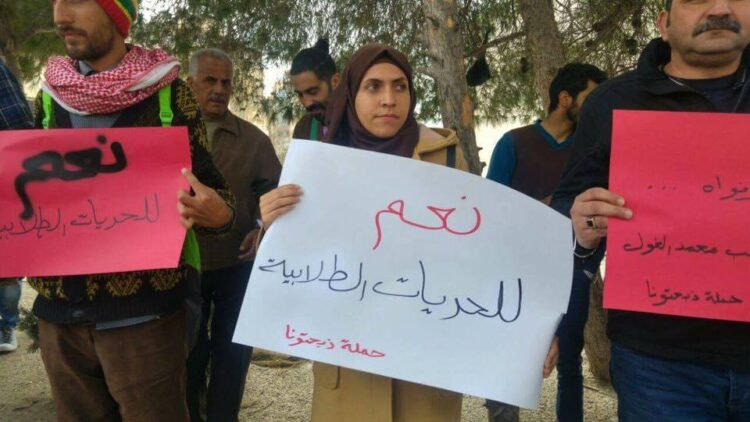 نعم
للحريات الطلابية
حملة ذبحتونا
نعم
للحريات الطلابية
... 
محمد الغول
حملة ذبحتونا